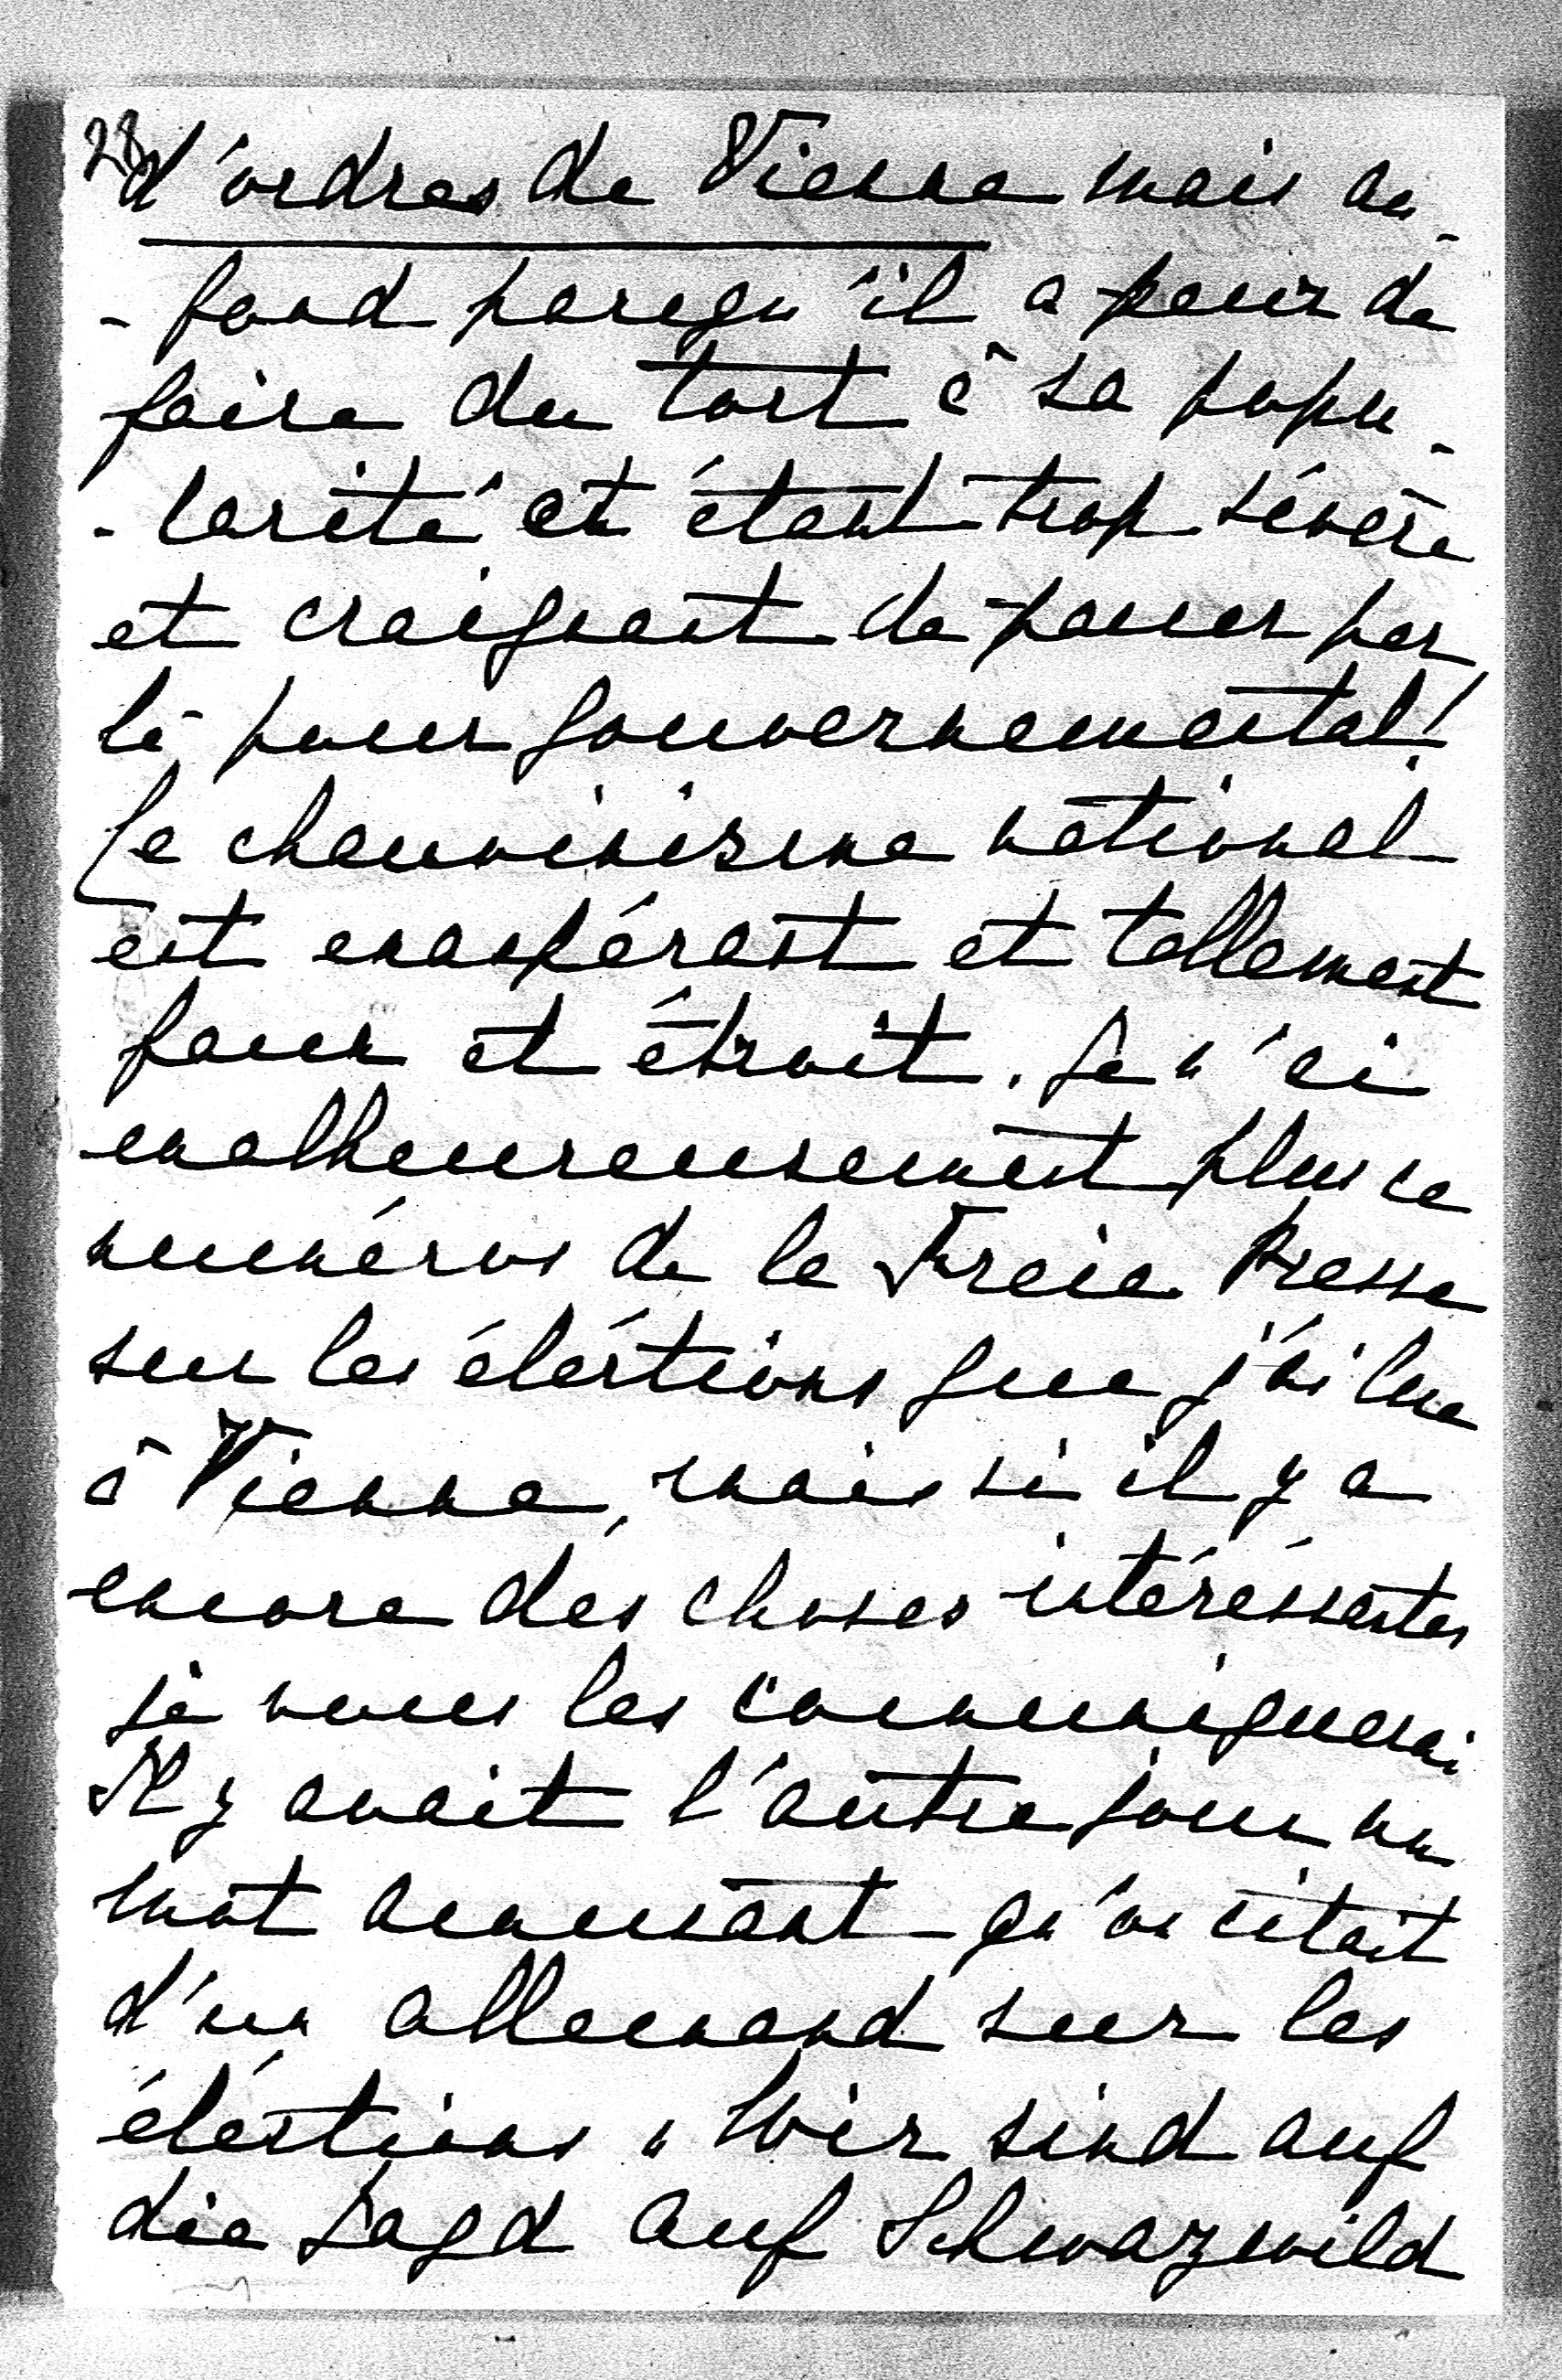 28
d'ordres de Vienne mais au-
-fond parcequ'il a peur de
faire du tort à sa popu-
-larité en étant trop sévère
et craignant de passer par
là pour gouvernemental!
Le chauvinisme national
est exaspérant et tellement
faux et étroit. Je n'ai
malheureusement plus ce
numéros de la Freie Presse
sur les éléctions que j'ai lue
à Vienne, mais si il y a
encore des choses intéréssantes
je vous les communiquerai
Il y avait l'autre jour un
mot amusant qu'on citait
d'un allemand sur les
éléctions „ Wir sind auf
die Jagd auf Schwazwild